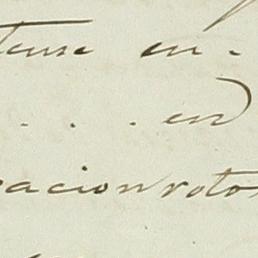 tense en.
. . . en
acion roto